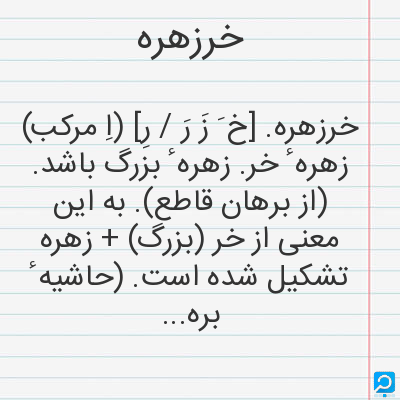 خرزهره
خرزهره. [خ َ زَ رَ / رِ] (اِ مرکب)
زهره ٔ خر. زهره ٔ بزرگ باشد.
(از برهان قاطع). به این
معنی از خر (بزرگ) + زهره
تشکیل شده است. (حاشیه ٔ
بره...